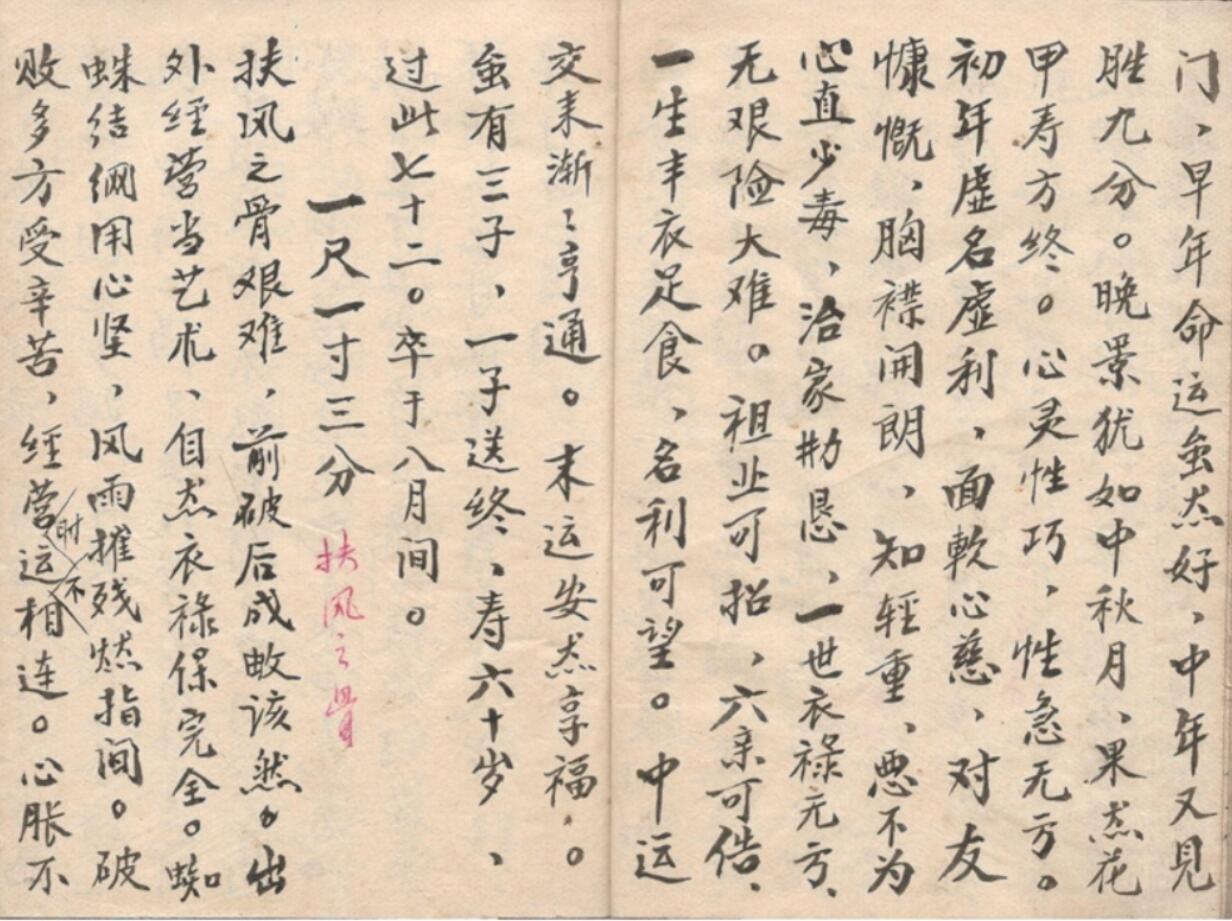 门、早年命运虽然好、中年又见
胜九分。晚景犹如中秋月、果然花
甲寿方终。心灵性巧、性急无方。
初年虚名虚利、面軟心慈、对友
慷慨、胸襟開朗、知轻重、恶不为
心直少毒、治家勤恳、一世衣禄无亏、
无艰险大难。祖业可招、六亲可借、
一生丰衣足食、名利可望。中运
交来渐〻亨通。末运安然享福。。
虽有三子、一子送终、寿六十岁、
过此七十二。卒于八月间。
一尺一寸三分 扶风之骨
扶风之骨艰难、前破后成敢该然。出
外经营当艺术、自然衣禄保完全。蜘
蛛结網用心坚、风雨摧残燃指间。破
败多方受辛苦、经营时运不相连。心胀不